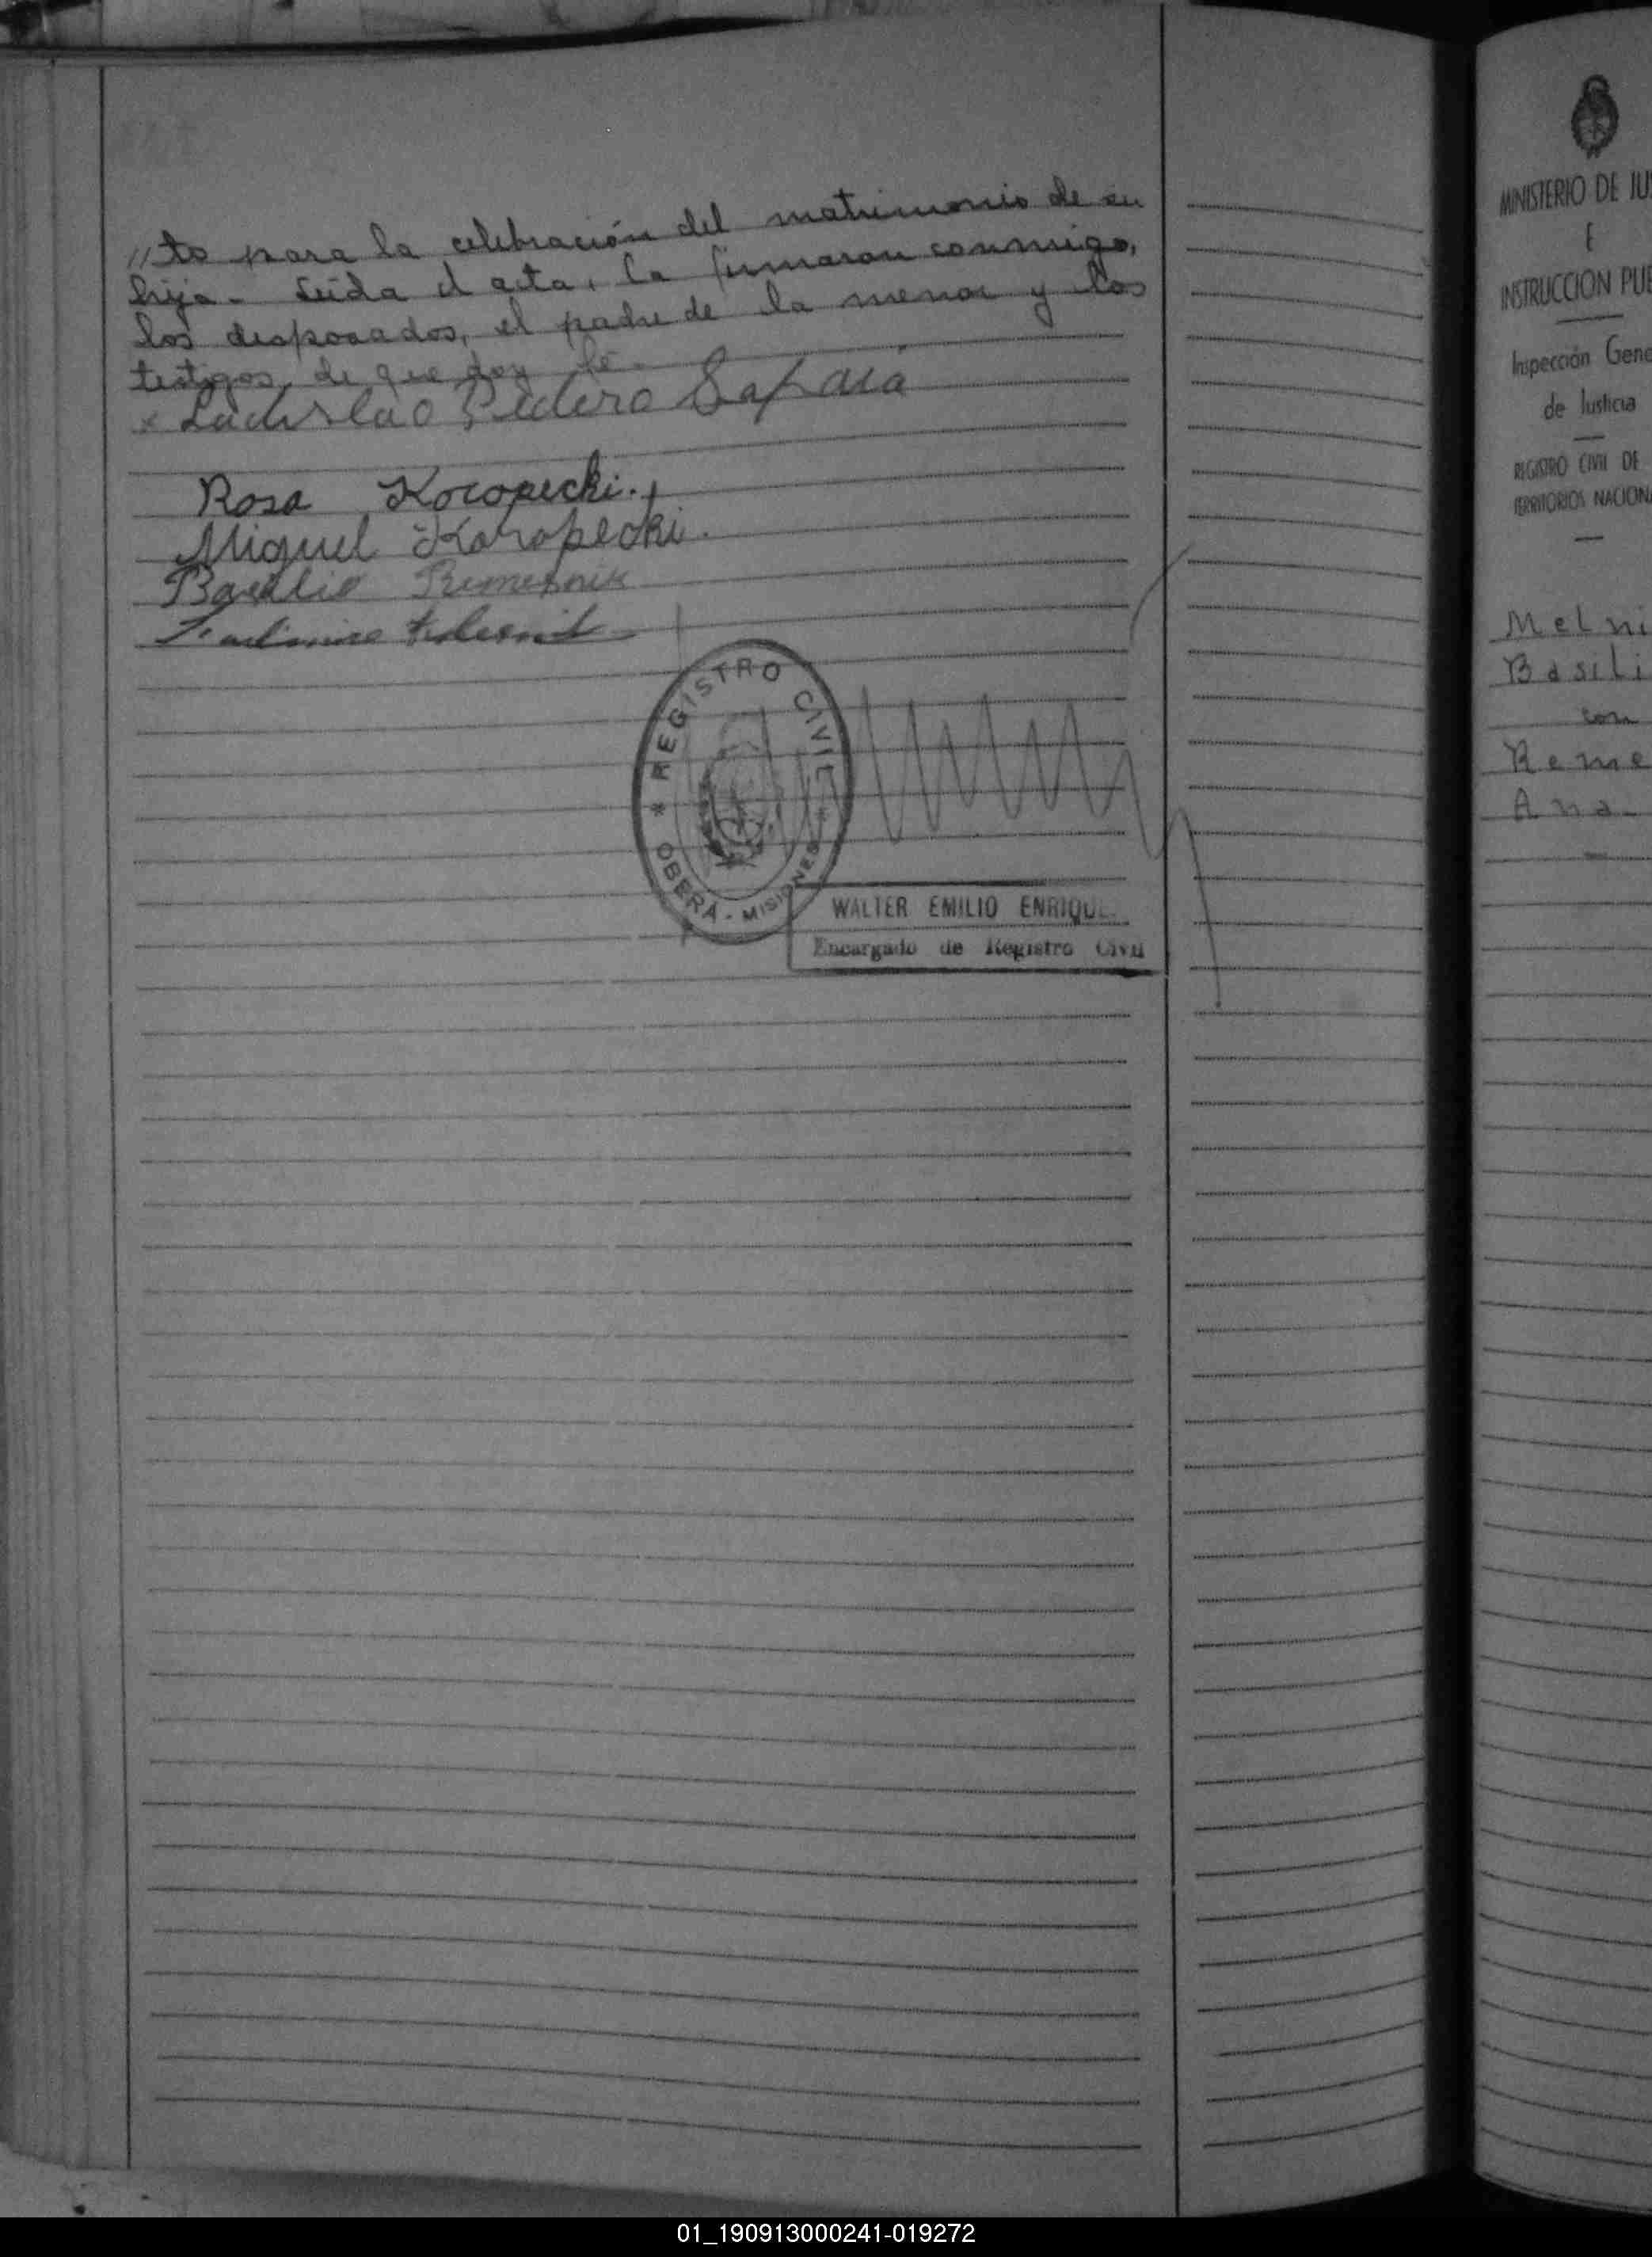 //to para la celebración del matrimonio de su
hija.- Leída el acta, la firmaron conmigo,
los desposados, el padre de la menor y los
testigos, de que doy fé.-
x Ladislao Pedero Sapaia
Rosa Koropecki.
Miguel Koropecki.
Basilio
REGISTRO CIVIL
* OBERÁ - MISIONES *
WALTER EMILIO ENRIQUE
Encargado de Registro Civil
MINISTERIO DE JUS
E
INSTRUCCION PUB
Inspección Gene
de Justicia
REGISTRO CIVIL DE
TERRITORIOS NACIONA
Melni
Basili
con
Reme
Ana.
01_190913000241-019272